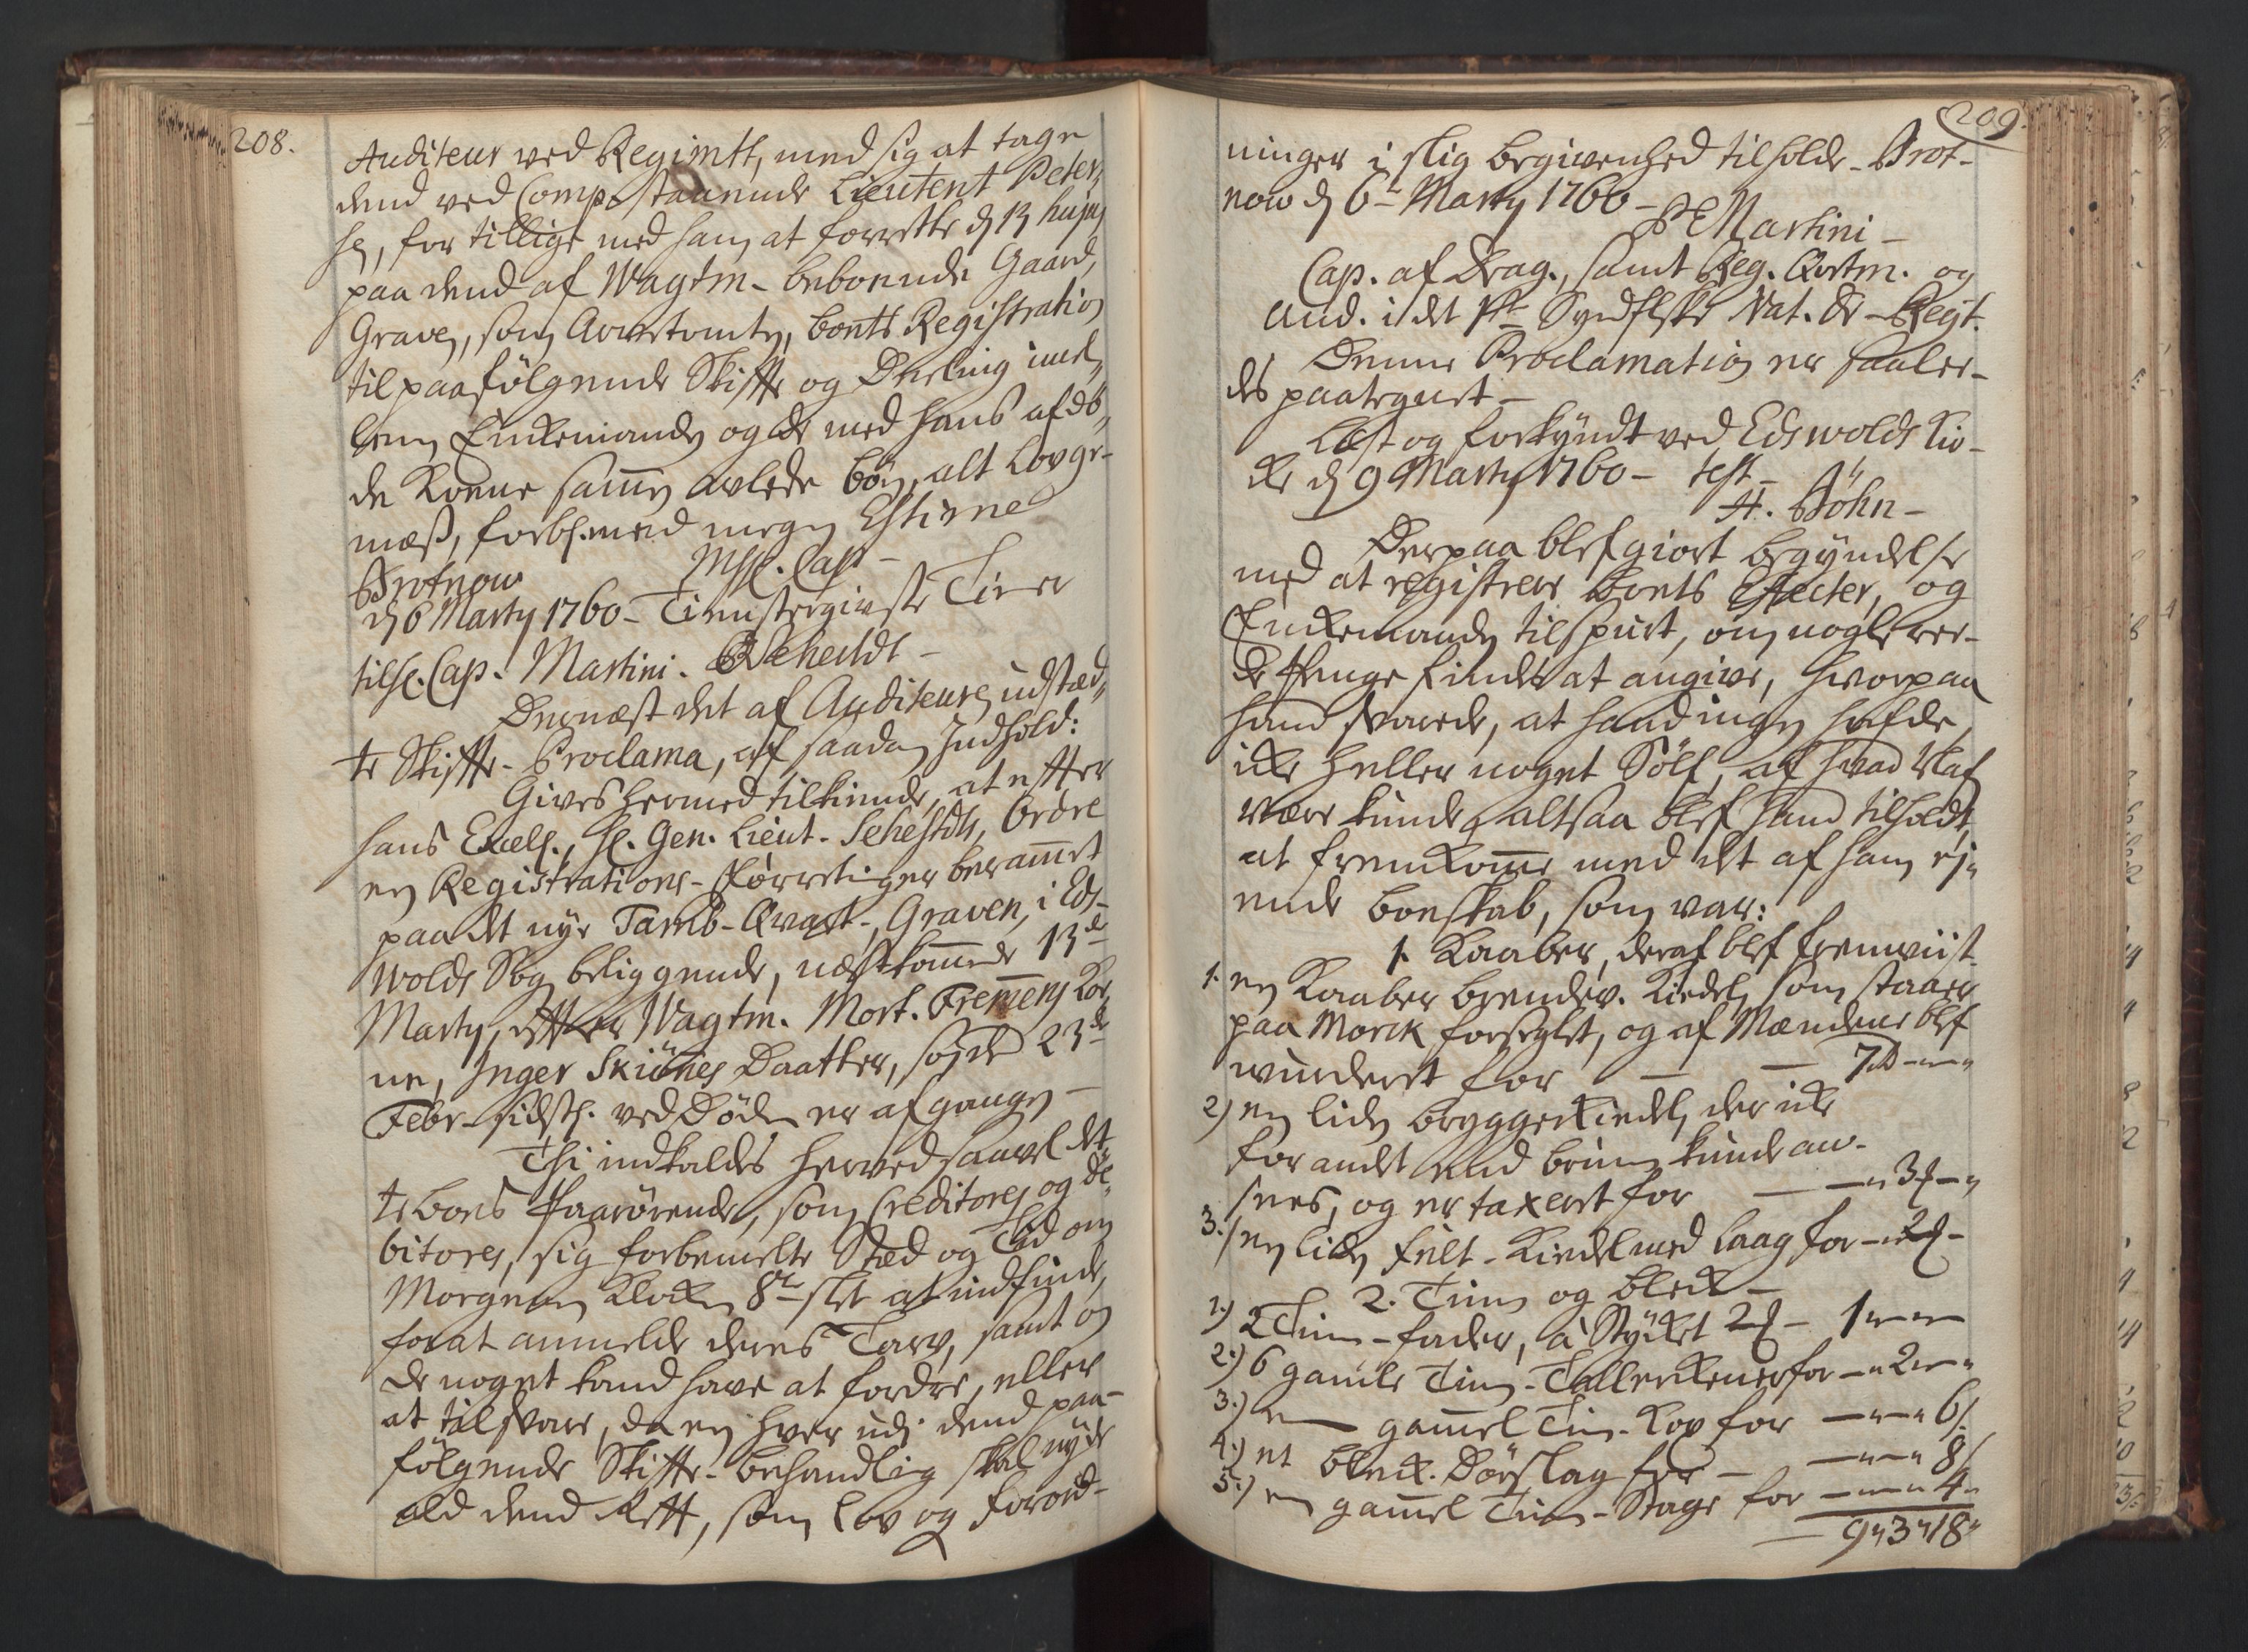 208.
Auditeur ved Regimtt, med sig at tage
dend ved Comp. staaende Lieutent Peter„
sen, for tillige med ham at forrette d 13 hujus
paa dend af Wagtm. beboende Gaard,
Graven, som Qvarteret, boets Registration
til paafølgende Skiffte og Deeling imel„
lem Enkemanden og de med hans afdö„
de Kone samen avlede börn, alt lovge-
mæs, forbl. med megen Estime
Brotnow Msl. Cap.
d 6 Marty 1760 - Tienstergivste Tiener
til H. Cap. Martini. Sehestdt -
Dernæst det af Auditeuren udstæd„
te Skiffte-Proclama, af saadan Indhold:
Gives hermed tilkiende, at effter
hans Excell., H. Gen. Lieut. Sehestdts, Ordre
en Registrations-Forretning er beramet
paa det nye Tamb-Qvart., Graven, i Eds-
wolds Sogn beliggende, næstkomende 13de
Marty, effter Wagtm. Mort. Fremens Ko„
ne, Inger Skiönes Daatter, som d 23de
Febr. sidstl. ved Döden er afgangen -
Thi indkaldes herved saavel det„
te boes Paarörende, som Creditores og De„
bitores, sig forbemelte Stæd og Tid om
Morgenen Klocken 8te slet at indfinde,
for at anmelde deres Tarv, samt om
de noget kand have at fordre, eller
at tilsvare, da en hver udi dend paa-
fölgende Skiffte-behandling skal nyde
ald dend Rett, som Lov og Forord-
209.
ninger i slig begivenhed tilholde - Brot-
now d 6te Marty 1760 -
Martini -
Cap. af Drag., samt Reg. Qvtm. og
Aud. i det 1ste Syndflske Nat. Dr. Regt.
Denne Proclamation er saale-
des paategnet -
Læst og forkyndt ved Edswolds Kir-
ke d 9 Marty 1760 - test
A. Böhn -
Derpaa blef giort begyndelse
med at registrere boets Effecter, og
Enkemanden tilspurt, om nogle ree-
de Penge findes at angive, hvorpaa
hand svarede, at hand ingen hafde,
icke heller noget Sölf, af hvad Naf
være kunde, altsaa blef hand tilholdt,
at fremkome med det af ham ej„
ende boeskab, som var:
1. Kaaber, deraf blef fremviist
1. en Kaaber brendev. Kiedel, som staaer
paa Morck forseglet, og af Mændene blef
wurderet for — — 7 rd - „ - „
2) en liden bryggerkiedel, der icke
for andet end bruun kunde an-
sees, og er taxeret for — - „ 3 - „
3.) en liden felt-Kiedel med laag for - „ 2 -
2. Tiin og bleck -
1.) 2 Tiin-fader, à Stycket 2 - 1 „ - „
2.) 6 gamle Tiin-Tallerkener for - „ 2 - „
3.) en gamel Tiin-Kop for - „ - „ 6
4.) et bleck-Dörslag for - - „ - „ 8
5.) en gamel Tiin-Stage for - „ - „ 4
9 „ 3 „ 18